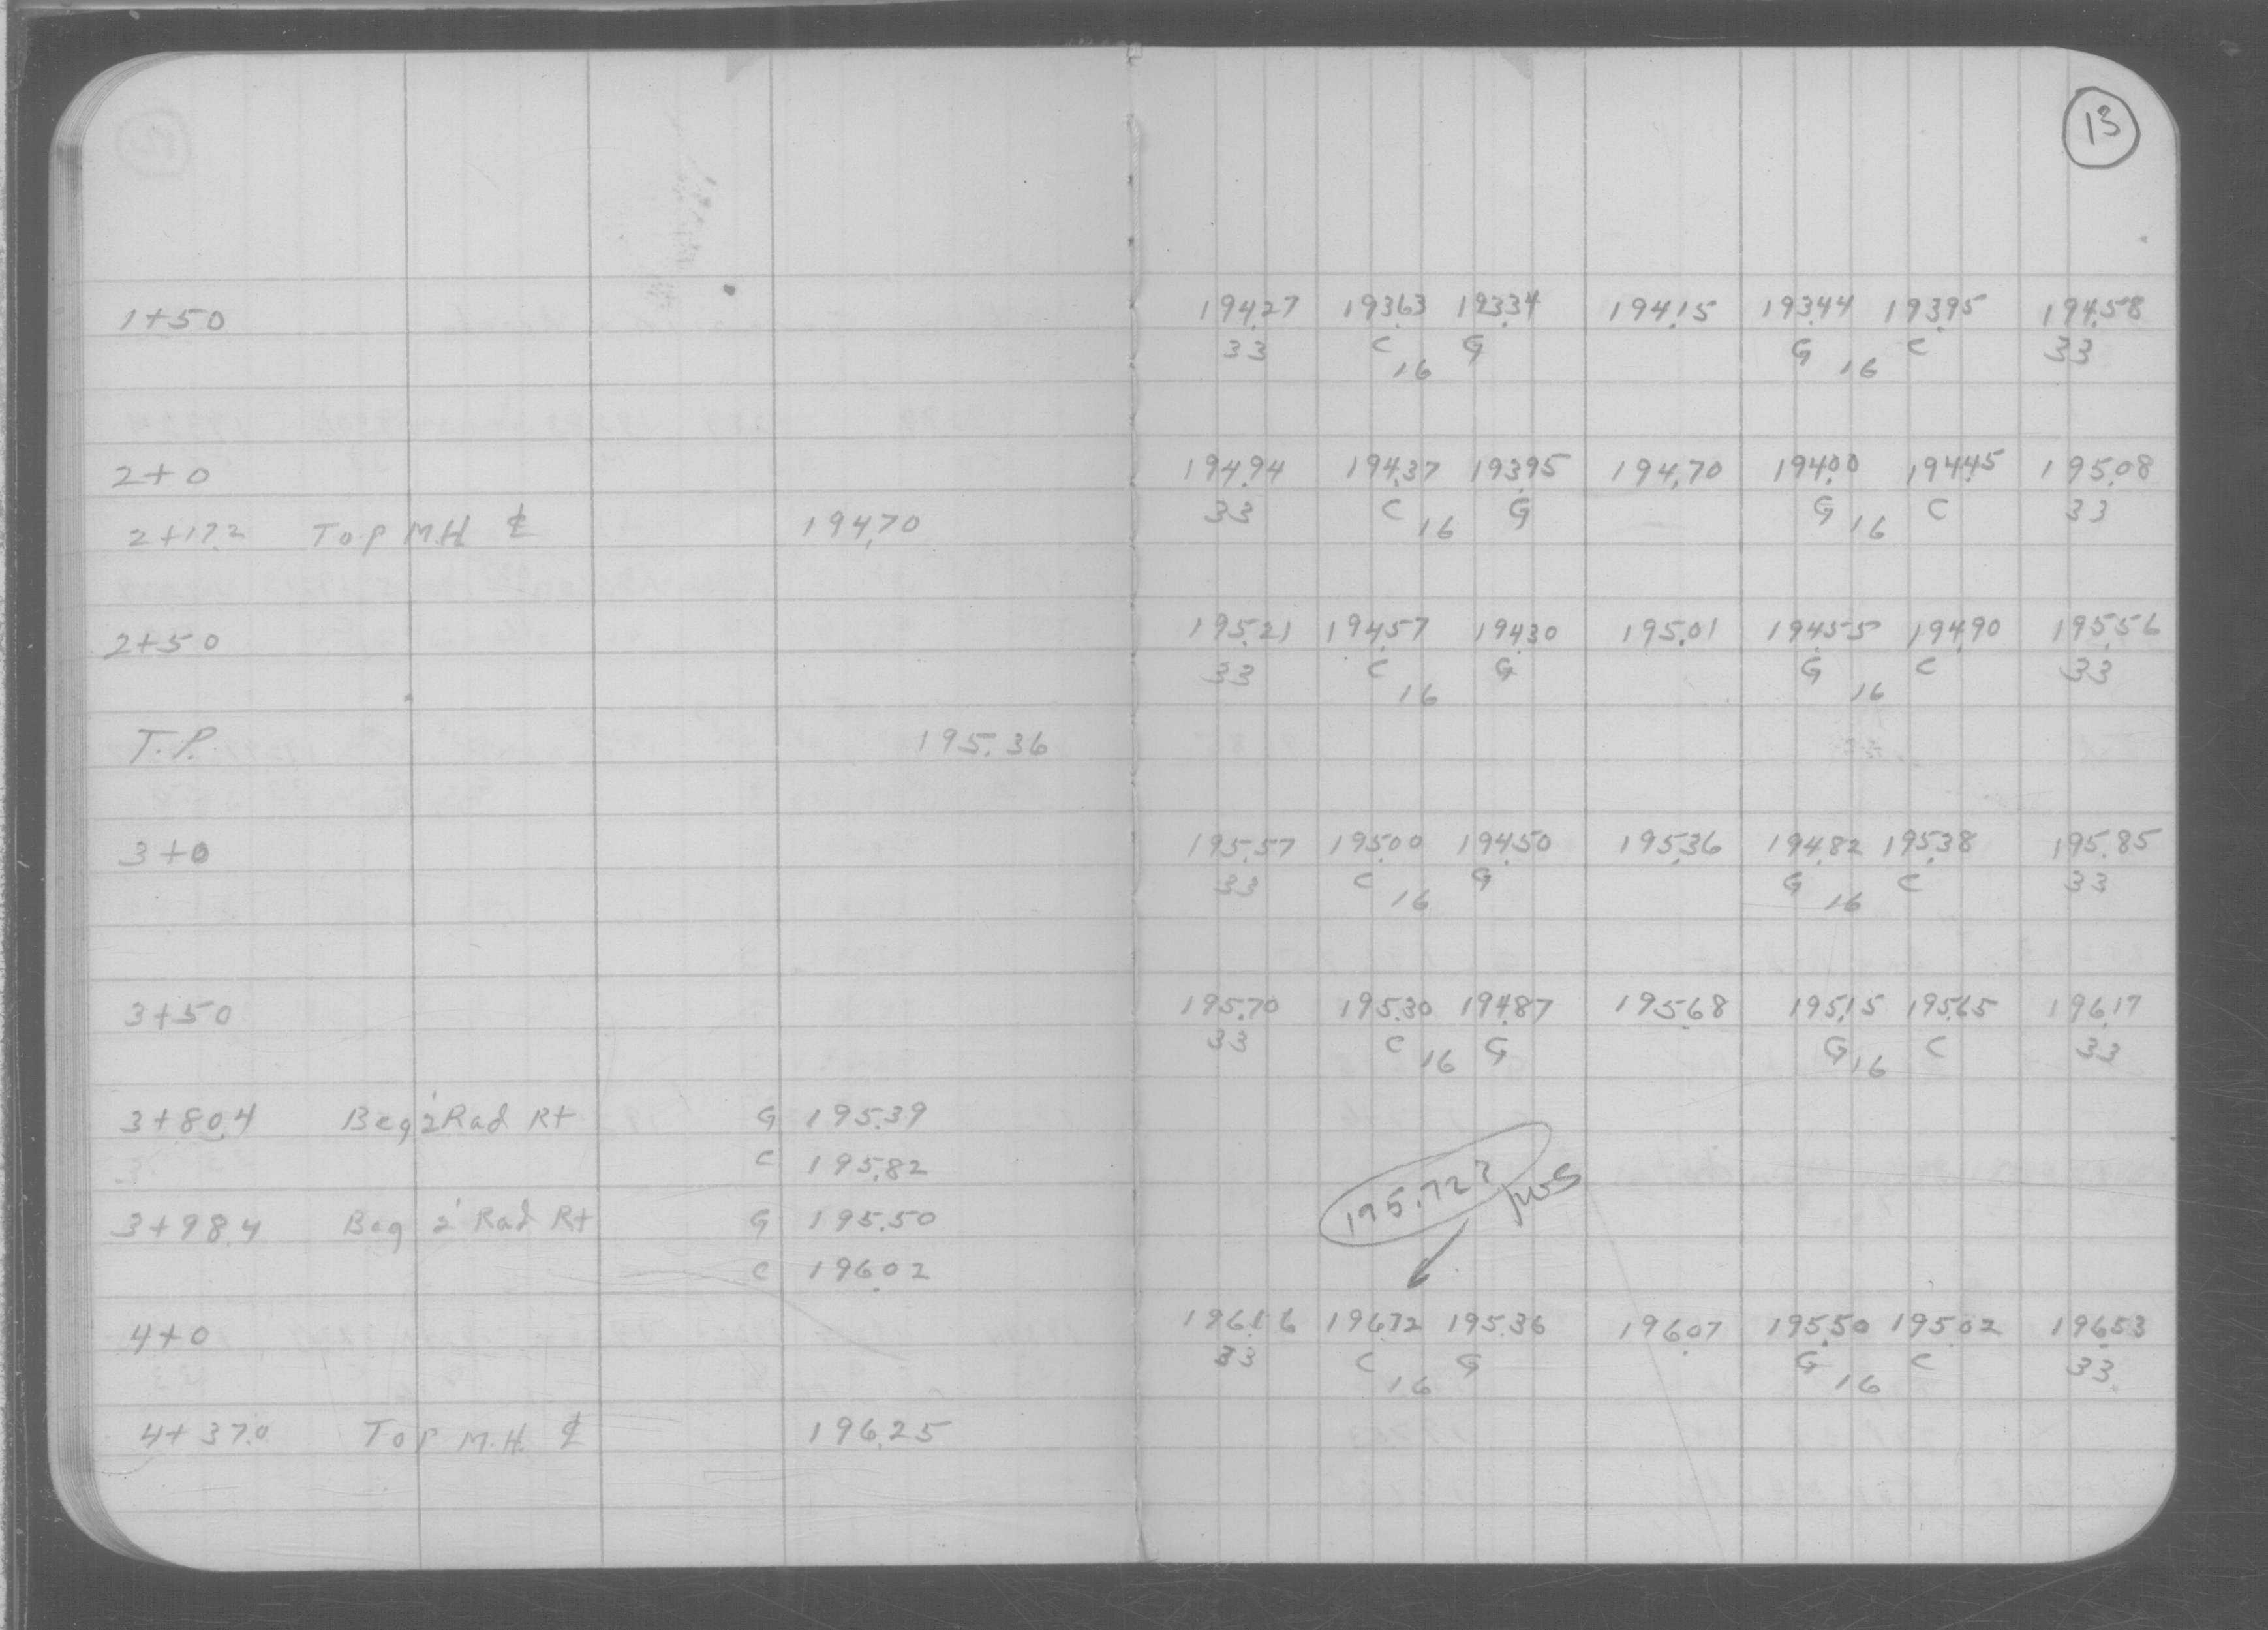 13
1+50 194.27 193.63 193.34 194.15 193.44 193.95 194.58
33 C 16 G G 16 C 33
2+0 194.94 194.37 193.95 194.70 194.00 194.45 195.08
33 C 16 G G 16 C 33
2+17.2 Top M.H ℄ 194.70
2+50 195.21 194.57 194.30 195.01 194.55 194.90 195.56
33 C 16 G G 16 C 33
T.P. 195.36
3+0 195.57 195.00 194.50 195.36 194.82 195.38 195.85
33 C 16 G G 16 C 33
3+50 195.70 195.30 194.87 195.68 195.15 195.65 196.17
33 C 16 G G 16 C 33
3+80.4 Beg 2' Rad Rt G 195.39
C 195.82
195.72? JWS
3+98.4 Beg 2' Rad Rt G 195.50
C 196.02
4+0 196.16 196.72 195.36 196.07 195.50 195.02 196.53
33 C 16 G G 16 C 33
4+37.0 Top M.H. ℄ 196.25